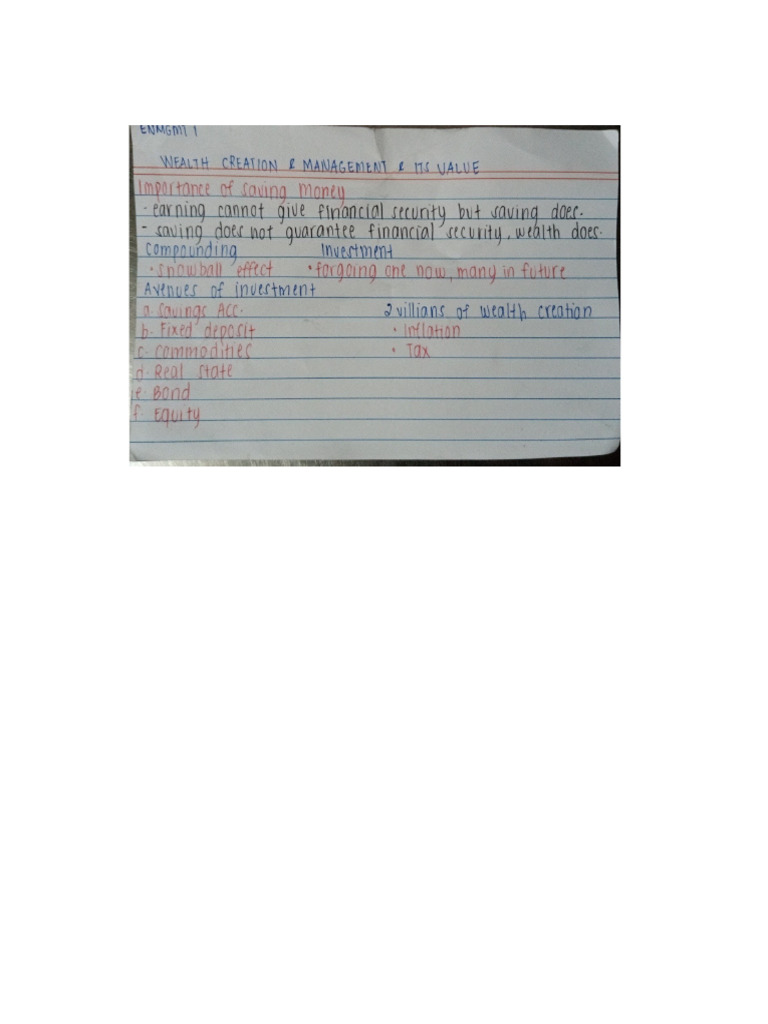 ENMGMT 1
WEALTH CREATION & MANAGEMENT & ITS VALUE
Importance of saving money
- earning cannot give financial security but saving does.
- saving does not guarantee financial security, wealth does.
Compounding Investment
• snowball effect • forgoing one now, many in future
Avenues of investment
a. Savings Acc. 2 villians of wealth creation
b. Fixed deposit • Inflation
c. Commodities • Tax
d. Real State
e. Bond
f. Equity